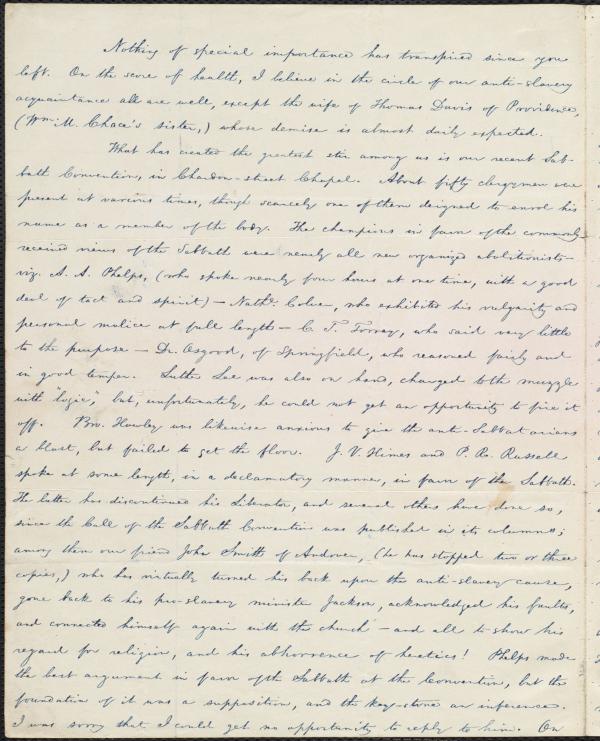 Nothing of special importance has transpired since you
left. On the score of health, I believe in the circle of our anti-slavery
acquaintance all are well, except the wife of Thomas Davis of Providence,
(Wm. M. Chace's sister,) whose demise is almost daily expected.
What has created the greatest stir among us is our recent Sab-
bath Convention, in Chardon-street Chapel. About fifty clergymen were
present at various times, though scarcely one of them deigned to enrol his
name as a member of the body. The champions in favor of the commonly
received views of the Sabbath were nearly all new organized abolitionists-
viz. A. A. Phelps, (who spoke nearly four hours at one time, with a good
deal of tact and spirit) — Nathl. Colver, who exhibited his vulgarity and
personal malice at full length — C. T. Torrey, who said very little
to the purpose — Dr. Osgood, of Springfield, who reasoned fairly and
in good temper. Luther Lee was also on hand, charged to the muzzle
with "logic," but, unfortunately, he could not get an opportunity to fire it
off. Bro. Hawley was likewise anxious to give the anti-Sabbatarians
a blast, but failed to get the floor. J. V. Himes and P. R. Russell
spoke at some length, in a declamatory manner, in favor of the Sabbath.
The latter has discontinued his Liberator, and several others have done so,
since the Call of the Sabbath Convention was published in its columns;
among them our friend John Smith of Andover, (he has stopped two or three
copies,) who has virtually turned his back upon the anti-slavery cause,
gone back to his pro-slavery minister Jackson, acknowledged his faults,
and connected himself again with the church — and all to show his
regard for religion, and his abhorrence of heretics! Phelps made
the best argument in favor of the Sabbath at the Convention, but the
foundation of it was a supposition, and the key-stone an inference.
I was sorry that I could get no opportunity to reply to him. On